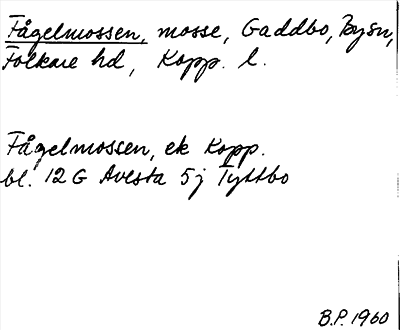 Fågelmossen, mosse, Gaddbo, By sn,
Folkare hd, Kopp. l.
Fågelmossen, ek Kopp.
bl. 12 G Avesta 5j Tyttbo
B.P. 1960